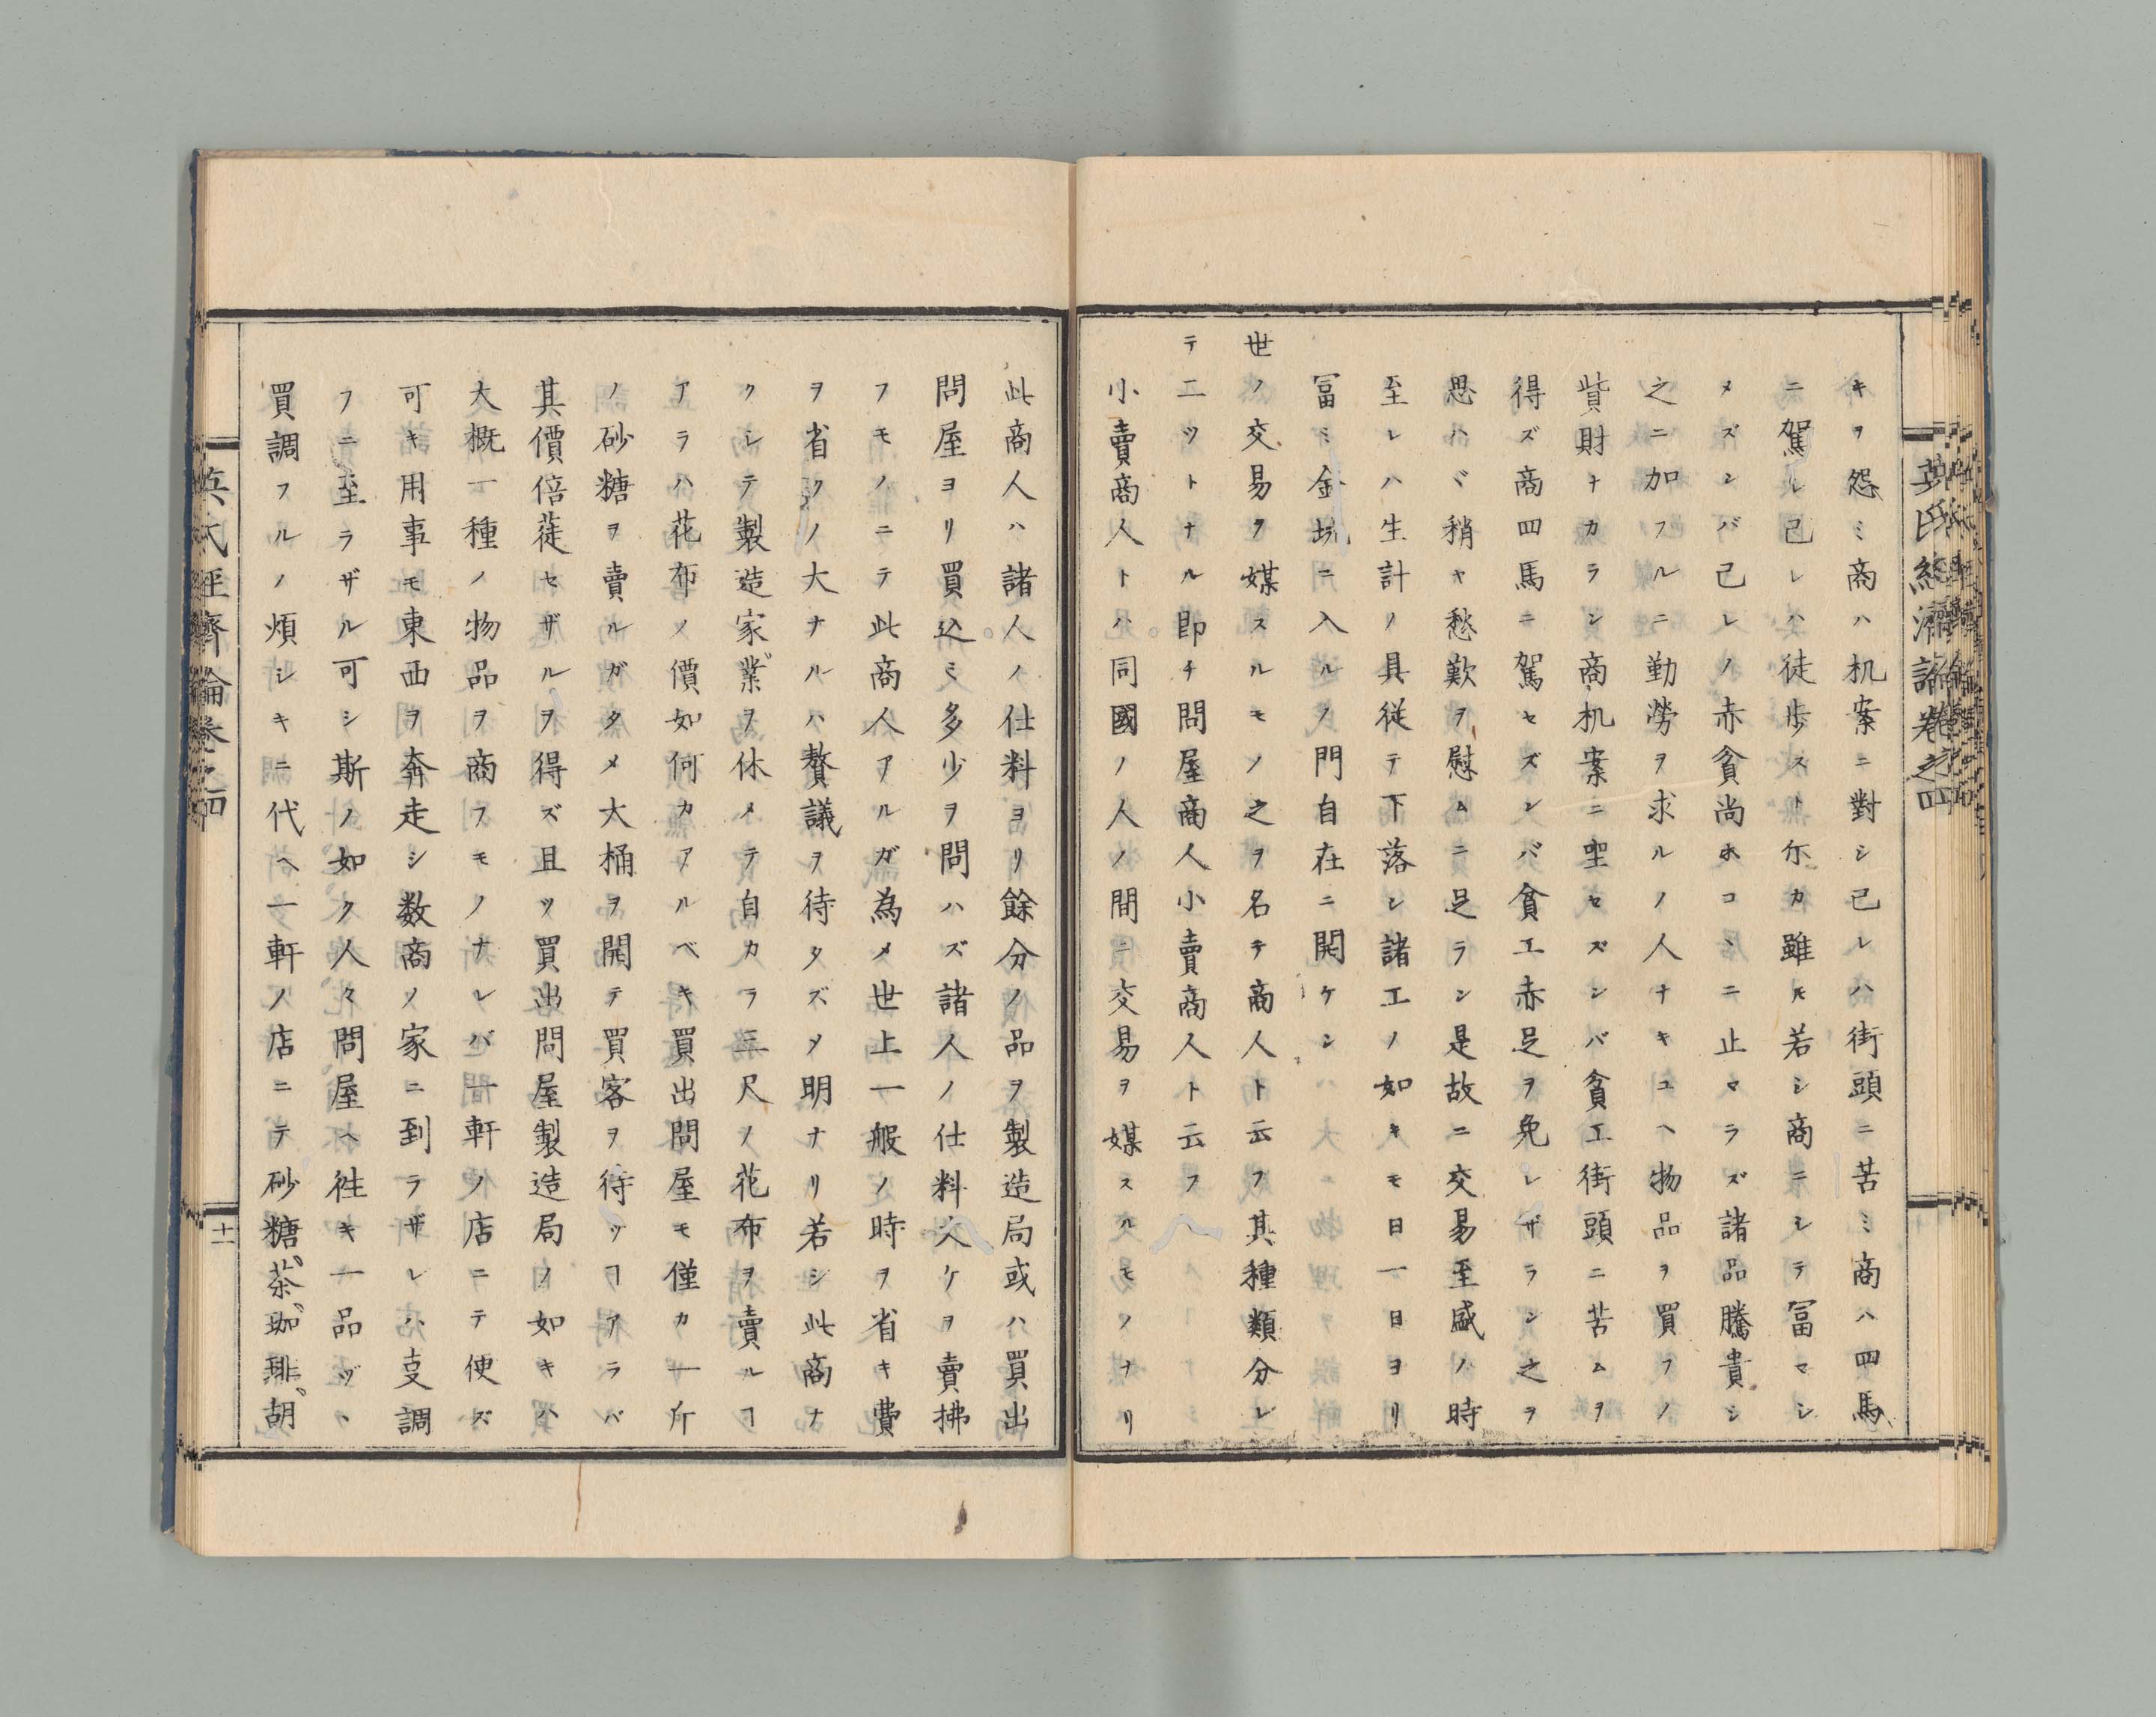 英氏經濟論卷之四
キヲ怨ミ商ハ机案ニ對シ己レハ街頭ニ苦ミ商ハ四馬
ニ駕シ己レハ徒歩スト尓カ雖𪜈若シ商ニシテ冨マシ
メズンバ己レノ赤貧尚ホコヽニ止マラズ諸品騰貴シ
之ニ加フルニ勤勞ヲ求ルノ人ナキユヘ物品ヲ買フノ
貲財ナカラン商机案ニ坐セズンバ貧工街頭ニ苦ムヲ
得ズ商四馬ニ駕セズンバ貧工赤足ヲ免レザラン之ヲ
思ハヾ稍ヤ愁歎ヲ慰ムニ足ラン是故ニ交易至盛ノ時
至レハ生計ノ具従テ下落シ諸工ノ如キモ日一日ヨリ
冨ミ金坑ニ入ルノ門自在ニ開ケン
世ノ交易ヲ媒スルモノ之ヲ名ヂ商人ト云フ其種類分レ
テ二ツトナル即チ問屋商人小賣商人ト云フ
小賣商人トハ同國ノ人ノ間ニ交易ヲ媒スルモノナリ
此商人ハ諸人ノ仕料ヨリ餘分ノ品ヲ製造局或ハ買出
問屋ヨリ買込ミ多少ヲ問ハズ諸人ノ仕料欠ケヲ賣拂
フモノニテ此商人アルガ為メ世上一般ノ時ヲ省キ費
ヲ省クノ大ナルハ贅議ヲ待タズメ明ナリ若シ此商ナ
クシテ製造家業ヲ休メテ自カラ三尺ノ花布ヲ賣ルヿ
アラハ花布ノ價如何カアルベキ買出問屋モ僅カ一斤
ノ砂糖ヲ賣ルガタメ大桶ヲ開テ買客ヲ待ツヿアラバ
其價倍蓰セザルヲ得ズ且ツ買出問屋製造局ノ如キハ
大概一種ノ物品ヲ商フモノナレバ一軒ノ店ニテ便ズ
可キ用事モ東西ヲ奔走シ数商ノ家ニ到ラザレハ支調
フニ至ラザル可シ斯ノ如ク人々問屋ヘ徃キ一品ヅヽ
買調フルノ煩シキニ代ヘ一軒ノ店ニテ砂糖、茶、珈琲、胡
英氏經濟論卷之四
十一